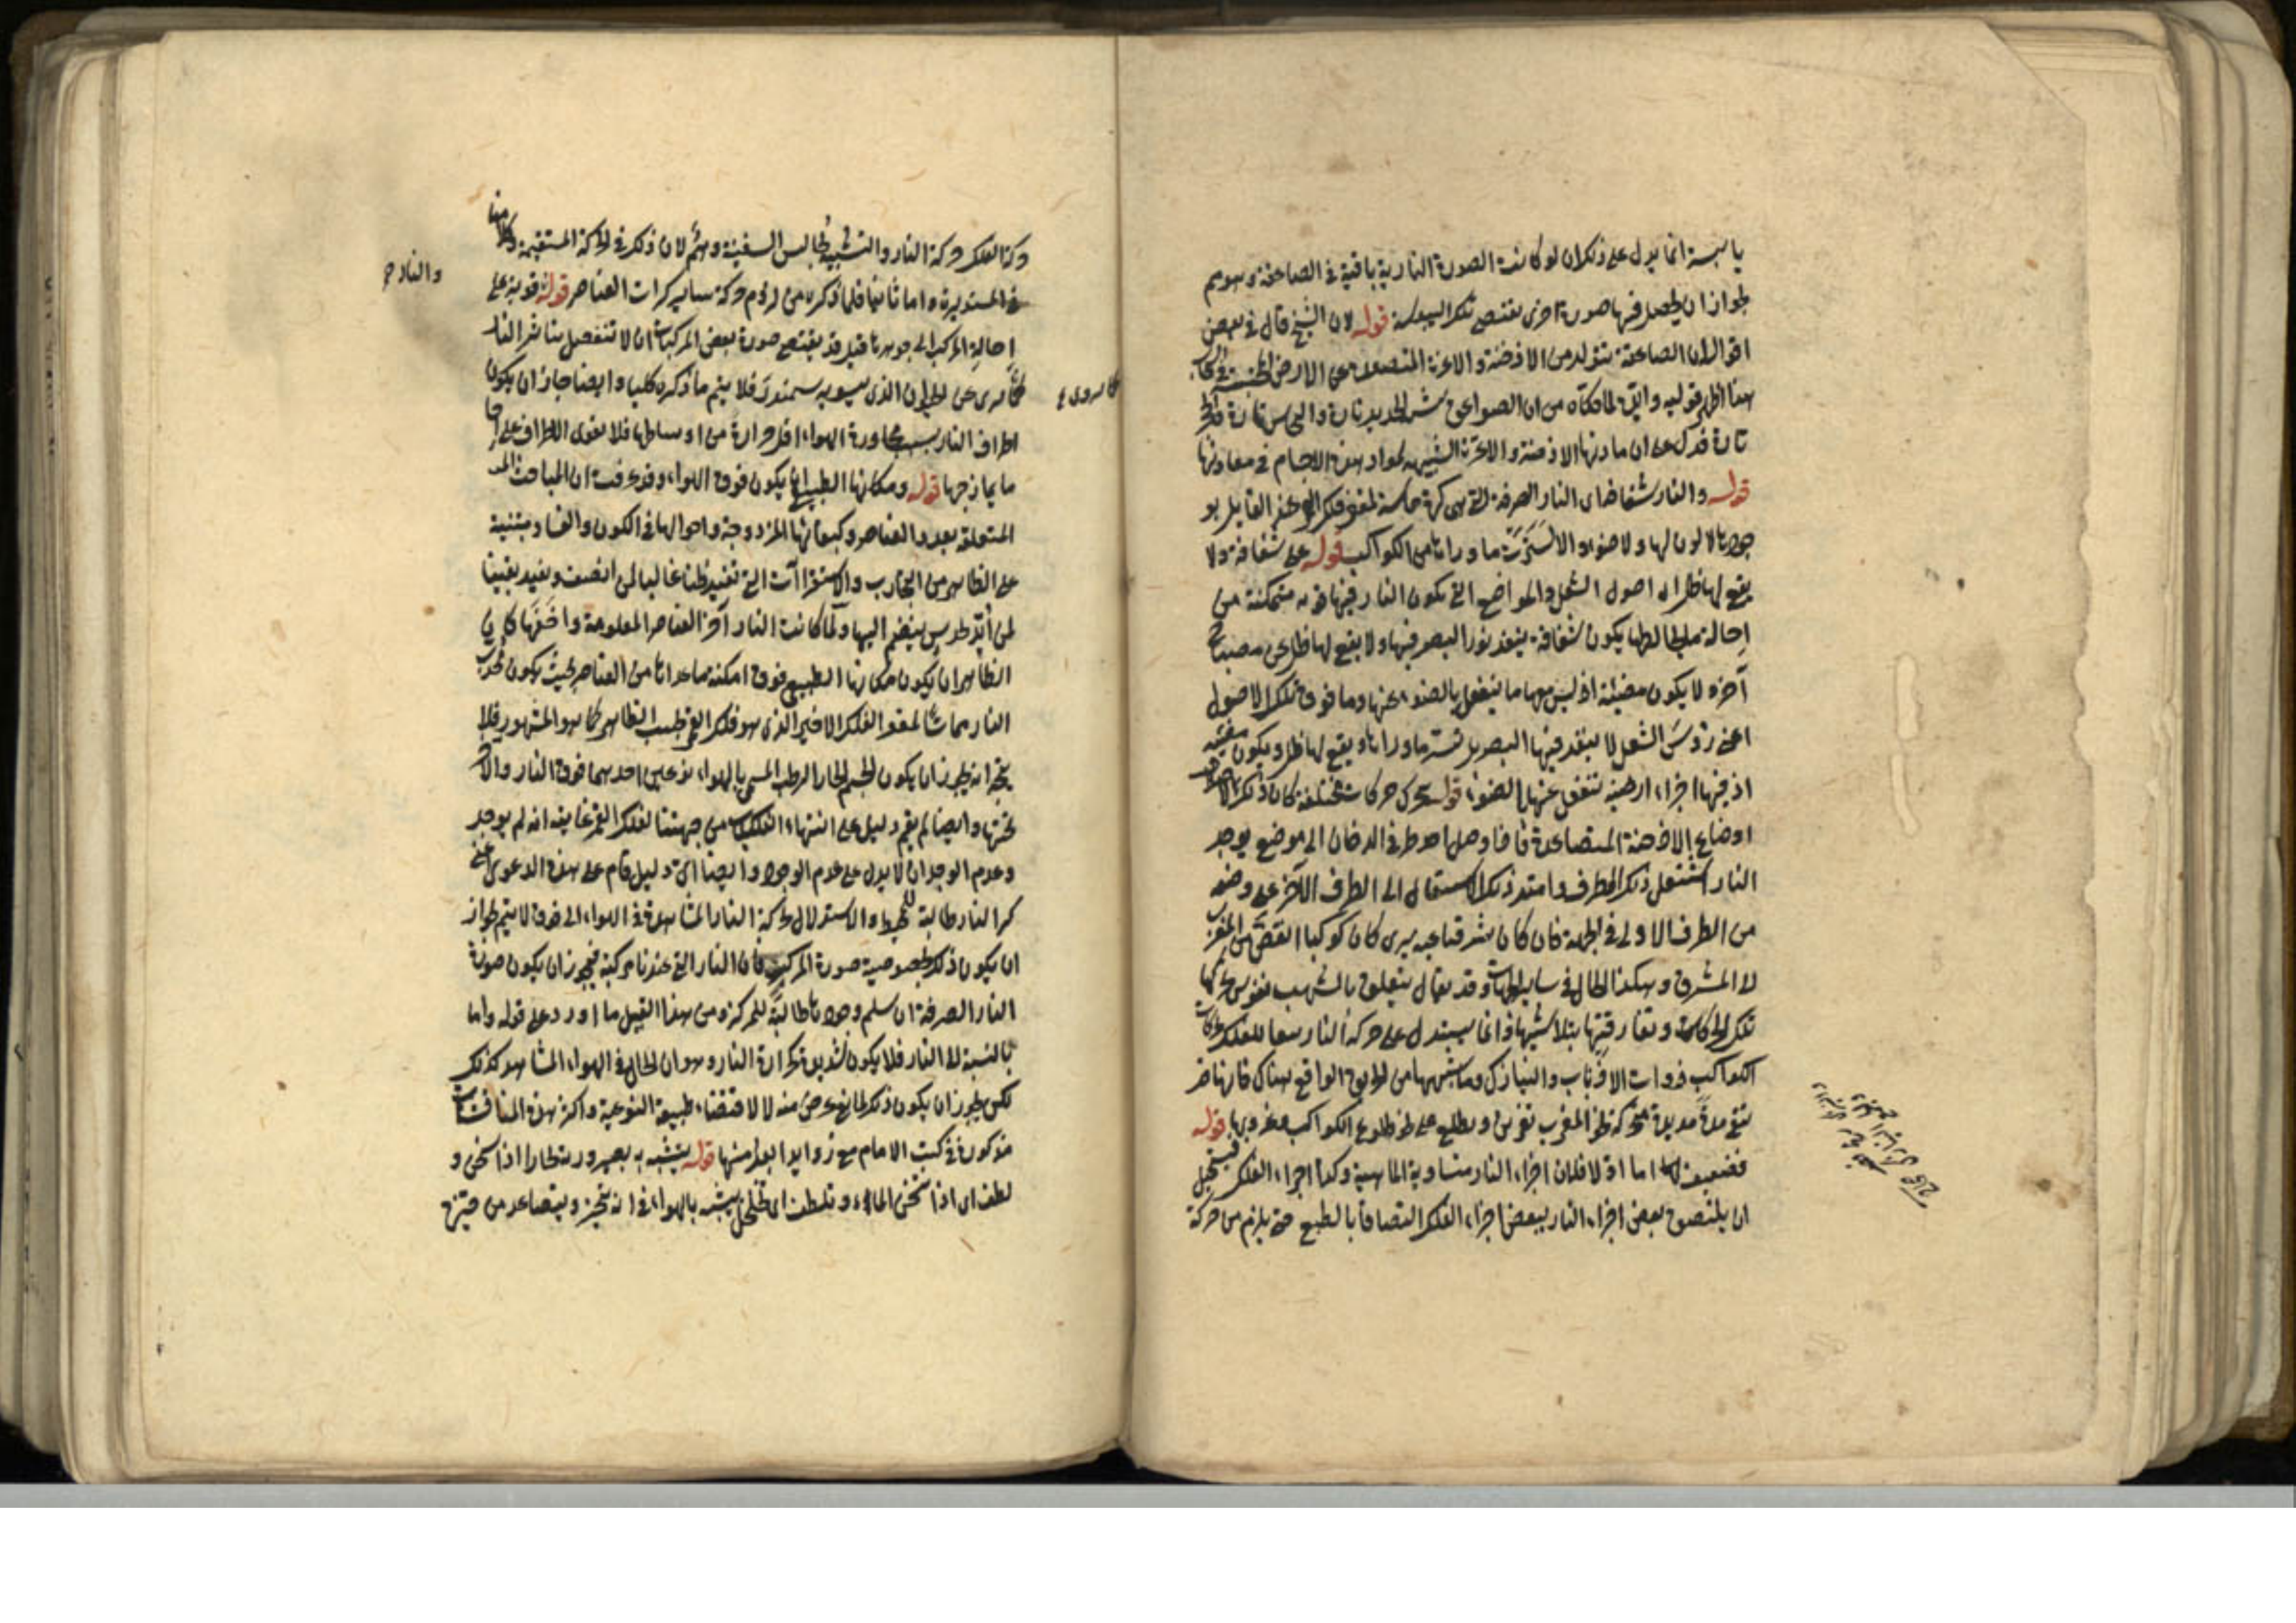 يابسة انما يدل على ذلك ان لو كانت الصورة النارية باقية في الصاعقة وهو مم
لجواز ان يحصل فيها صورة اخرى تقتضي تلك اليبوسة قوله لان الشيخ قال في بعض
اقواله ان الصاعقة تتولد من الادخنة والابخرة المتصعدة عن الارض
هذا اظهر قوليه واليق لما حكاه من ان الصواعق تشبه الحديد تارة والنحاس تارة والحجر
تارة فدل على ان مادتها الادخنة والابخرة الشبيهة لمواد هذه الاجسام في معادنها
قوله والنار شفافة اى النار الصرفة التي هي كرة مماسة لمقعر فلك القمر عند القايل بو
جودها لا لون لها ولا ضوء والا لسترت ما وراءها من الكواكب قوله على شفافة ولا
يقع لها ظل اى اصول الشعل والمواضع التي يكون النار فيها قوية متمكنة من
احالة ما يخالطها يكون شفافة ينفذ نور البصر فيها ولا يقع لها ظل عن مصباح
آخر ولا يكون مضيئة اذ ليس معها ما ينفعل بالضوء عنها وما فوق تلك الاصول
اعنى رؤس الشعل لا ينفذ فيها البصر بل تستر ما وراءها ويقع لها ظل ويكون مضيئة
اذ فيها اجزاء ارضية تنفعل عنها بالضوء قوله يتحرك حركات مختلفة كان ذلك لاختلاف
اوضاع الادخنة المتصاعدة فاذا وصل احد طرفي الدخان الى موضع يوجد
النار اشتعل ذلك الطرف وامتد ذلك الاشتعال الى الطرف الآخر على وضعه
من الطرف الاول في الجهة فان كان شرقيا عنه يرى كان كوكبا انقض من المغرب
الى المشرق وهكذا الحال في ساير الجهات وقد يقال يتعلق بالشهب نفوس تحركها
تلك الحركات وتفارقها بتلاشيها وانما يستدل على حركة النار تبعا للفلك بحركات
الكواكب ذوات الاذناب والنيازك وما يشبهها من الحريق الواقع هناك فانها قد
تبقى مدة مديدة متحركة نحو المغرب تغرب وتطلع على نحو طلوع الكواكب وغروبها قوله
فضعيف اما اولا فلان اجزاء النار متساوية الماهية وكذا اجزاء الفلك فيستحيل
ان يلتصق بعض اجزاء النار ببعض اجزاء الفلك التصاقا بالطبع حتى يلزم من حركة
وحركة الفلك حركة النار والتشبيه بجالس السفينة وهم لان ذلك في الحركة المستقيمة وكلامنا
في المستديرة واما ثانيا فلما ذكره من لزوم حركة ساير كرات العناصر قوله قوية على
احالة المركب الى جوهرها قيل قد يقتضي صورة بعض المركبات ان لا تنفعل بتاثير النار
كما يروى عن الحيوان الذى يسمونه سمندر فلا يتم ما ذكره كليا وايضا جاز ان يكون
اطراف النار بسبب مجاورة الهواء اقل حرارة من اوساطها فلا تقوى الاطراف على احا
ما يمازجها قوله ومكانها الطبيعى ان يكون فوق الهواء وقد عرفت ان المباحث
المتعلقة بعدد العناصر وكيفياتها المزدوجة واحوالها في الكون والفساد مبتنية
على الظاهر من التجارب والاستقراآت التي تفيد ظنا غالبا لمن انصف ويفيد يقينا
لمن أيد بحدس ينضم اليها ولما كانت النار آخر العناصر المعلومة واخفها كان
الظاهر ان يكون مكانها الطبيعي فوق امكنة ما عداها من العناصر بحيث يكون محدب
النار مماسا لمقعر الفلك الاخير الذى هو فلك القمر بحسب الظاهر كما هو المشهور فلا
يتجه انه يجوز ان يكون الجسم الحار الرطب المسمى بالهواء نوعين احدهما فوق النار والآخر
تحتها وايضا لم يقم دليل على انتهاء الفلكيات من جهتنا بفلك القمر غايته انه لم يوجد
وعدم الوجدان لا يدل على عدم الوجود وايضا اى دليل قام على هذه الدعوى اعنى
كون النار طالبة للمحيط والاستدلال بحركة النار المشاهدة في الهواء الى فوق لا يتم لجواز
ان يكون ذلك لخصوصية صورة المركب فان النار التي عندنا مركبة فيجوز ان يكون صورة
النار الصرفة ان سلم وجودها طالبة للمركز ومن هذا القبيل ما اورد على قوله واما
بالنسبة الى النار فلا يكون شديد الحرارة النار وهو ان الحال في الهواء المشاهد كذلك
لكن يجوز ان يكون ذلك لمانع عرض منه لا لاقتضاء طبيعته النوعية واكثر هذه المناقشات
مذكورة في كتب الامام مع زوايد ابعد منها قوله يتشبه به بصيرورته بخارا اذا سخن و
لطف اى اذا سخن الماء وتلطف اى تخلخل يتشبه بالهواء في انه يتحيز ويتصاعد من حيزه
والنار
كما يروى